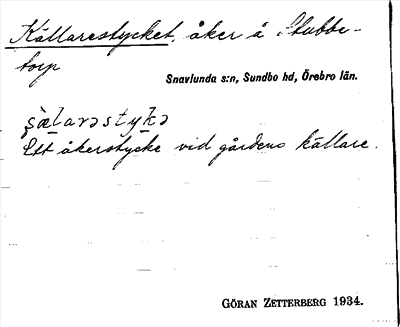 Källarestycket, åker å Stubbe-
torp
Snavlunda s:n, Sundbo hd, Örebro län.
ʂælarəstykə
Ett åkerstycke vid gårdens källare.
GÖRAN ZETTERBERG 1934.